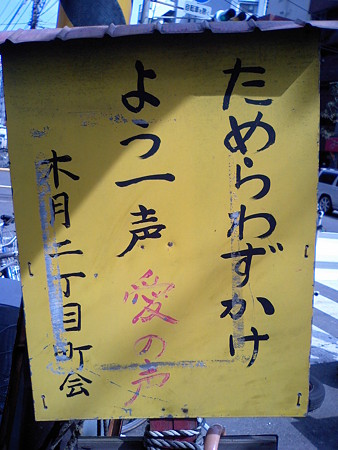 ためらわずかけ
よう一声 愛の声
木月二丁目町会